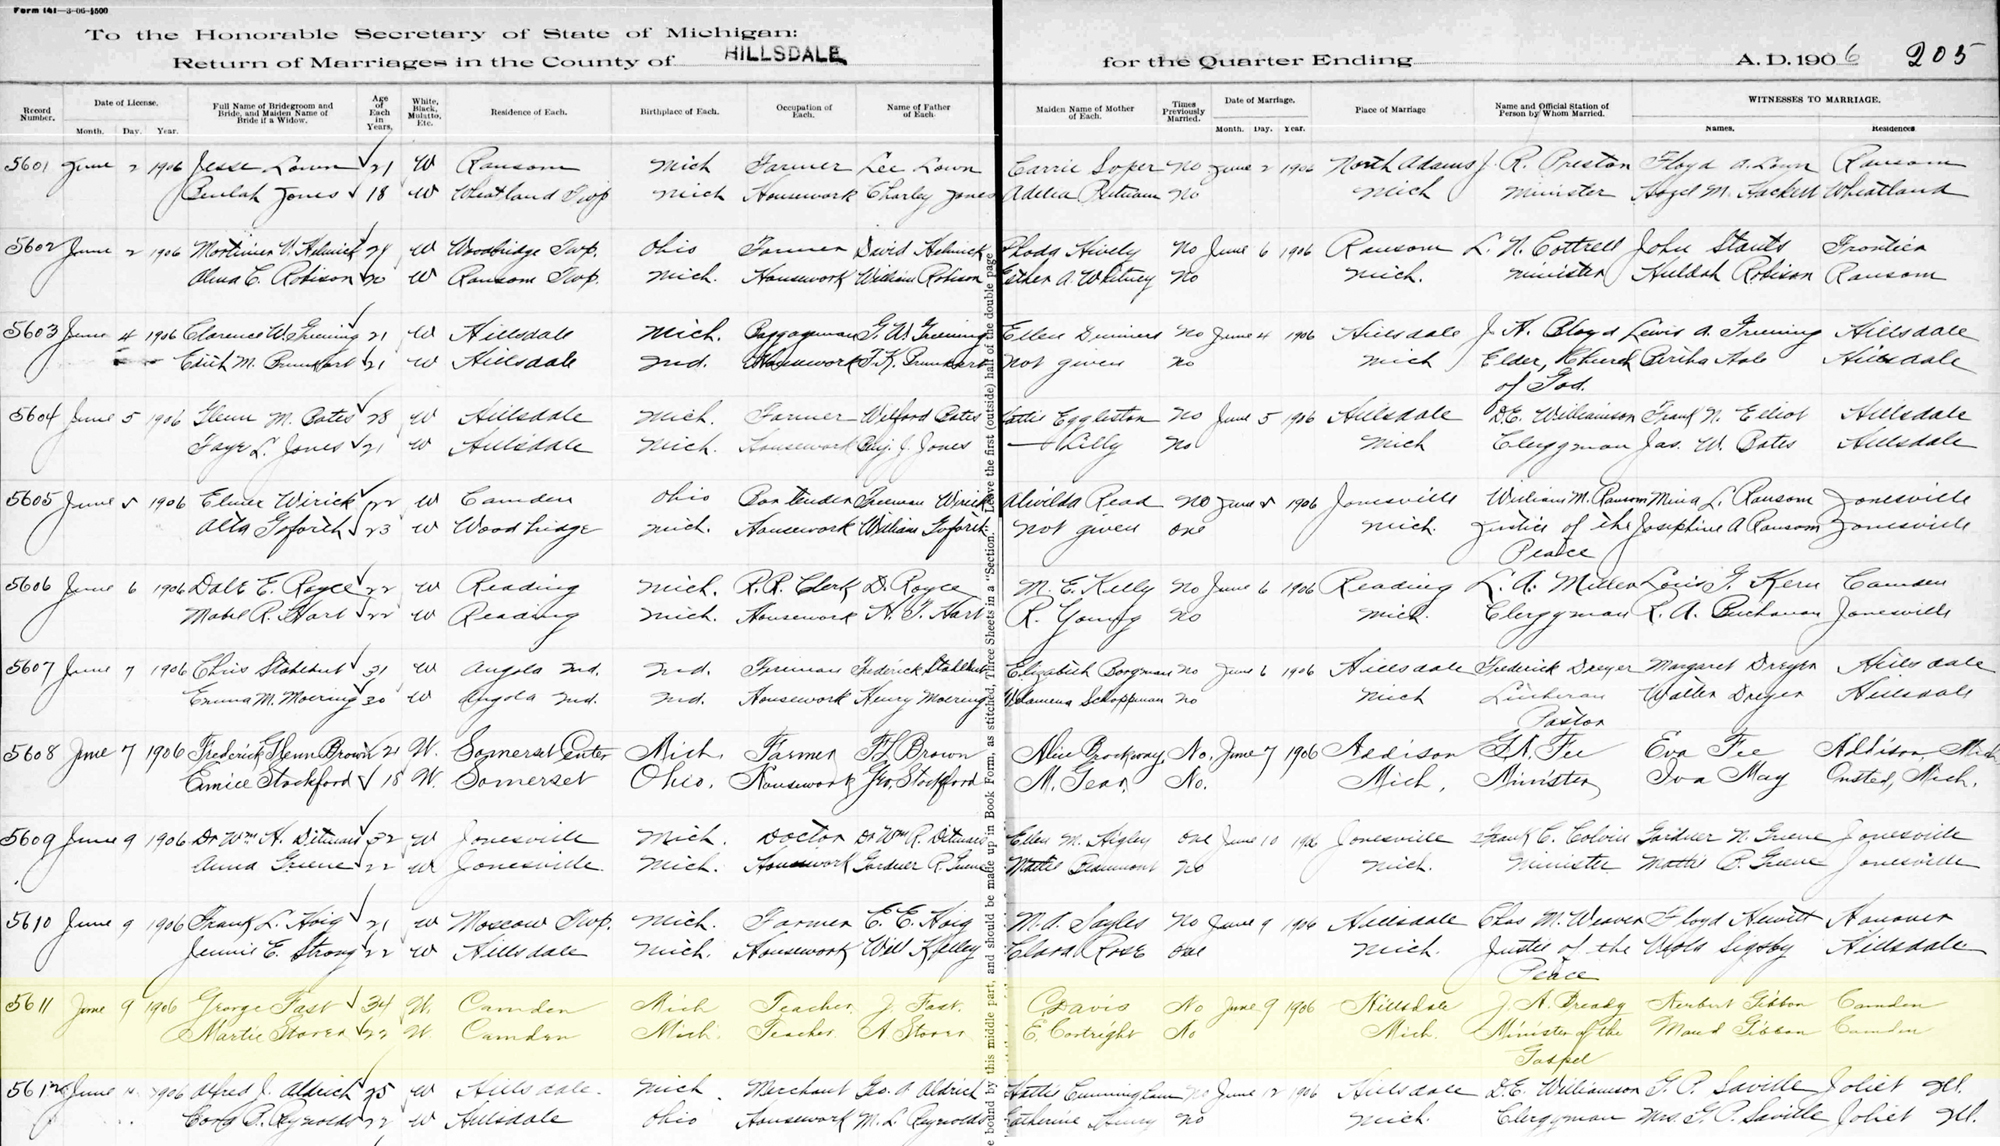 Form 141—3-06-1500
To the Honorable Secretary of State of Michigan:
Return of Marriages in the County of HILLSDALE for the Quarter Ending A. D. 1906 205
Record Number. Date of License. Month. Day. Year. Full Name of Bridegroom and Bride, and Maiden Name of Bride if a Widow. Age of Each in Years. White, Black, Mulatto, Etc. Residence of Each. Birthplace of Each. Occupation of Each. Name of Father of Each. Maiden Name of Mother of Each. Times Previously Married. Date of Marriage. Month. Day. Year. Place of Marriage Name and Official Station of Person by Whom Married. WITNESSES TO MARRIAGE. Names. Residences
5601 June 2 1906 Jesse Lown 21 W Ransom Mich Farmer Lee Lown Carrie Soper no June 2 1906 North Adams J. R. Preston Floyd A. Lown Ransom
Beulah Jones 18 W Wheatland Twp Mich Housework Charley Jones Adelia Putnam no Mich Minister Hazel M. Hackett Wheatland
5602 June 2 1906 Mortimer V. Helmick 29 W Woodbridge Twp. Ohio Farmer David Helmick Rhoda Hively No June 6 1906 Ransom L. N. Cottrell John Stauts Frontier
Alma C. Robison 20 W Ransom Twp. Mich. Housework William Robison Esther A. Whitney no Mich. Minister Huldah Robison Ransom
5603 June 4 1906 Clarence W. Greening 21 W Hillsdale Mich. Baggageman G. W. Greening Ellen no June 4 1906 Hillsdale J. H. Bloyd Lewis A. Greening Hillsdale
Edith M. 21 W Hillsdale Ind. Housework not given no Mich Elder, Church Bertha Hillsdale
of God.
5604 June 5 1906 Glenn M. Bates 28 W Hillsdale Mich. Farmer Welford Bates Hattie Eggleston no June 5 1906 Hillsdale D. E. Williamson Frank N. Elliot Hillsdale
Faye L. Jones 21 W Hillsdale Mich. Housework Benj. J. Jones — Lilly no Mich Clergyman Jas. W. Bates Hillsdale
5605 June 5 1906 Elmer Wirick 22 W Camden Ohio Bartender Freeman Wirick Alwilda Read no June 5 1906 Jonesville William M. Ransom Mina L. Ransom Jonesville
Alta Goforth 23 W Woodbridge Mich. Housework William Goforth not given one Mich. Justice of the Josephine A Ransom Jonesville
Peace
5606 June 6 1906 Dale E. Royce 22 W Reading Mich. R. R. Clerk D. Royce M. E. Kelly no June 6 1906 Reading L. A. Miller Lois G. Kern Camden
Mabel R. Hart 22 W Reading Mich. Housework H. F. Hart R. Young no Mich. Clergyman R. A. Buchanan Jonesville
5607 June 7 1906 Chris Stahlhut 31 W Angola Ind. Ind. Fireman Frederick Stahlhut Elizabeth Borgman no June 6 1906 Hillsdale Frederick Dreyer Margaret Dreyer Hillsdale
Emma M. Moering 30 W Angola Ind. Ind. Housework Henry Moering Schoppman no Mich Lutheran Walter Dreyer Hillsdale
Pastor
5608 June 7 1906 Frederick Glenn Brown 21 W. Somerset Center Mich. Farmer F. L. Brown Alice Brockway No. June 7 1906 Addison G. A. Fee Eva Fee Addison, Mich
Eunice Stockford 18 W. Somerset Ohio. Housework Geo. Stockford M. Gear No. Mich. Minister Iva May Onsted, Mich.
5609 June 9 1906 Dr Wm H. Ditmars 32 W Jonesville Mich. Doctor Dr Wm R. Ditmars Ellen M. Higley one June 10 1906 Jonesville Frank C. Colvin Gardner N. Greene Jonesville
Anna Greene 22 W Jonesville Mich. Housework Gardner R. Greene Mattie Beaumont no Mich. Minister Mattie B. Greene Jonesville
5610 June 9 1906 Frank L. Hoig 21 W Moscow Twp. Mich. Farmer E. E. Hoig M. A. Sayles No June 9 1906 Hillsdale Chas M. Weaver Floyd Hewitt Hanover
Jennie E. Strong 22 W Hillsdale Mich. Housework Will Kelley Clara Rose one Mich. Justice of the Viola Sigsby Hillsdale
Peace
5611 June 9 1906 George Fast 34 W. Camden Mich Teacher J. Fast. C. Davis No June 9 1906 Hillsdale J. H. Bready Herbert Gibbon Camden
Martie Stover 22 W. Camden Mich. Teacher A Stover E. Cortright No Mich. Minister of the Maud Gibbon Camden
Gospel
5612 June 1906 Alfred J. Aldrich 25 W Hillsdale. Mich Merchant Geo. A Aldrich Hattie Cunningham no June 12 1906 Hillsdale D. E. Williamson G. P. Saville Joliet Ill.
Cora B. Reynolds 22 W Hillsdale Ohio Housework M. L. Reynolds Catherine Henry no Mich. Clergyman Mrs. G. P. Saville Joliet Ill.
e bound by this middle part, and should be made up in Book Form, as stitched, Three Sheets in a "Section." Leave the first (outside) half of the double page